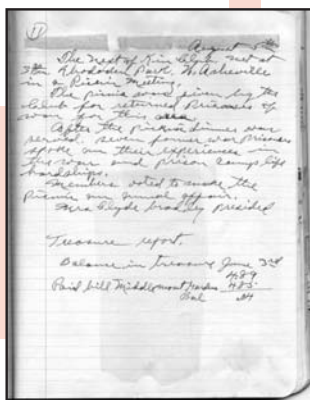 August 5th
The Next of Kin Club, met at
the Rhododen Park, W. Asheville
in a Picnic Meeting.
The picnic was given by the
Club for returned Prisoners of
war for this area
After the picknic dinner was
served seven former war prisoners
spoke on their experiences in
the war and prison camps life
hardships.
Members voted to make the
Picnic an annual affair.
Mrs Clyde Bradley presided
Treasure report.
Balance in treasure June 3rd
4.89
Paid bill Middlemount Garden 4.85
Bal .04